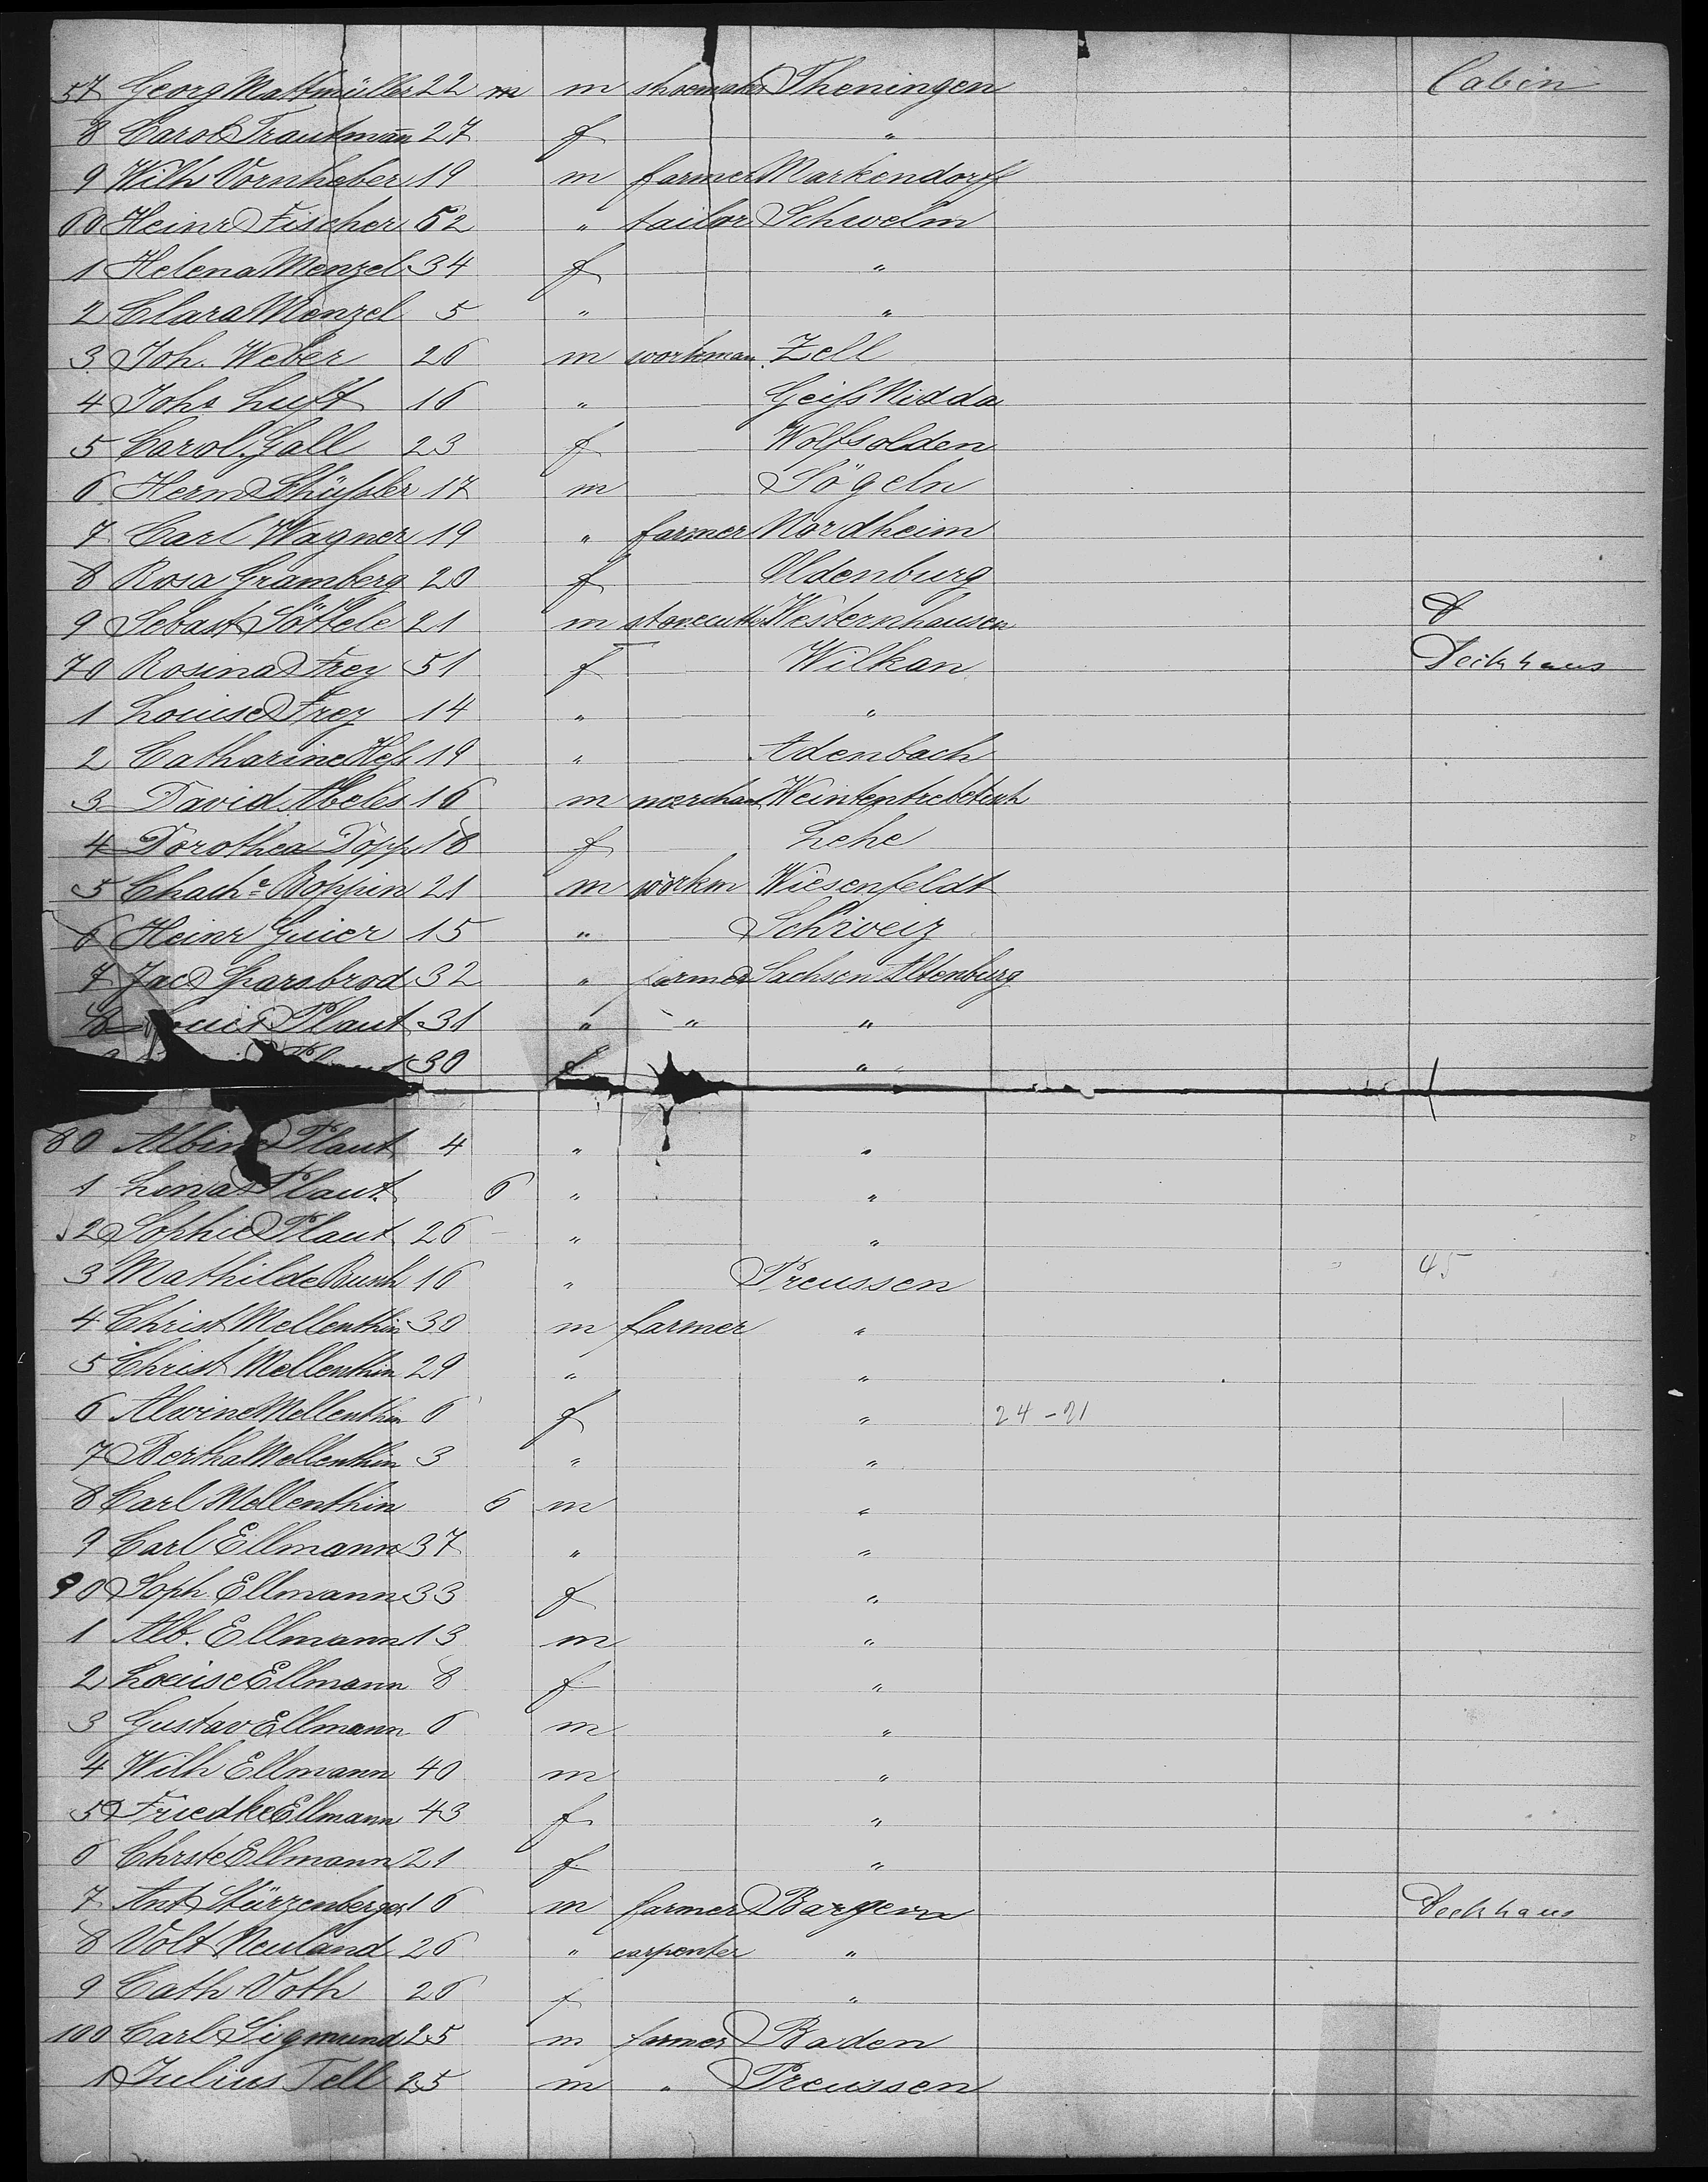 57 Georg Mattmüller 22 m m shoemaker Theningen Cabin
8 Carol Trautmann 27 f "
9 Wilh Vornheber 19 m farmer Markendorf
60 Heinr Fischer 52 " tailor Schwelm
1 Helena Menzel 34 f "
2 Clara Menzel 5 " "
3 Joh. Weber 26 m workman Zell
4 Johs Luft 16 " Geiß Nidda
5 Carol. Gall 23 f Wolfsolden
6 Herm Schüßler 17 m Sögeln
7 Carl Wagner 19 " farmer Nordheim
8 Rosa Gramberg 20 f Oldenburg
9 Sebast Söttele 21 m stonecutter Westernhausen
70 Rosina Frey 51 f Wilkan Deckhaus
1 Louise Frey 14 " "
2 Catharine Heß 19 " Adenbach
3 David Abeles 16 m merchant
4 Dorothea Döpp 18 f Lehe
5 Boppin 21 m workm Wiesenfeldt
6 Heinr Guier 15 " Schweiz
7 Jac Sparsbrod 32 " farmer Sachsen Altenburg
8 Louis Plaut 31 " " "
30 f "
80 Albine Plaut 4 " "
1 Lina Plaut 6 " "
2 Sophie Plaut 26 " "
3 Mathilde Busch 16 " Preussen 45
4 Christ Mellenthin 30 m farmer "
5 Christ Mellenthin 29 " "
6 Alwine Mellenthin 6 f " 24-21
7 Bertha Mellenthin 3 " "
8 Carl Mellenthin 6 m "
9 Carl Ellmann 37 " "
90 Soph Ellmann 33 f "
1 Alb. Ellmann 13 m "
2 Louise Ellmann 8 f "
3 Gustav Ellmann 6 m "
4 Wilh Ellmann 40 m "
5 Friedke Ellmann 43 f "
6 Chrste Ellmann 21 f "
7 Ant Stürzenberger 16 m farmer Bayern Deckhaus
8 Volt Neuland 26 " carpenter "
9 Cath Voth 26 f "
100 Carl Sigmund 25 m farmer Baden
1 Julius Tell 25 m " Preussen